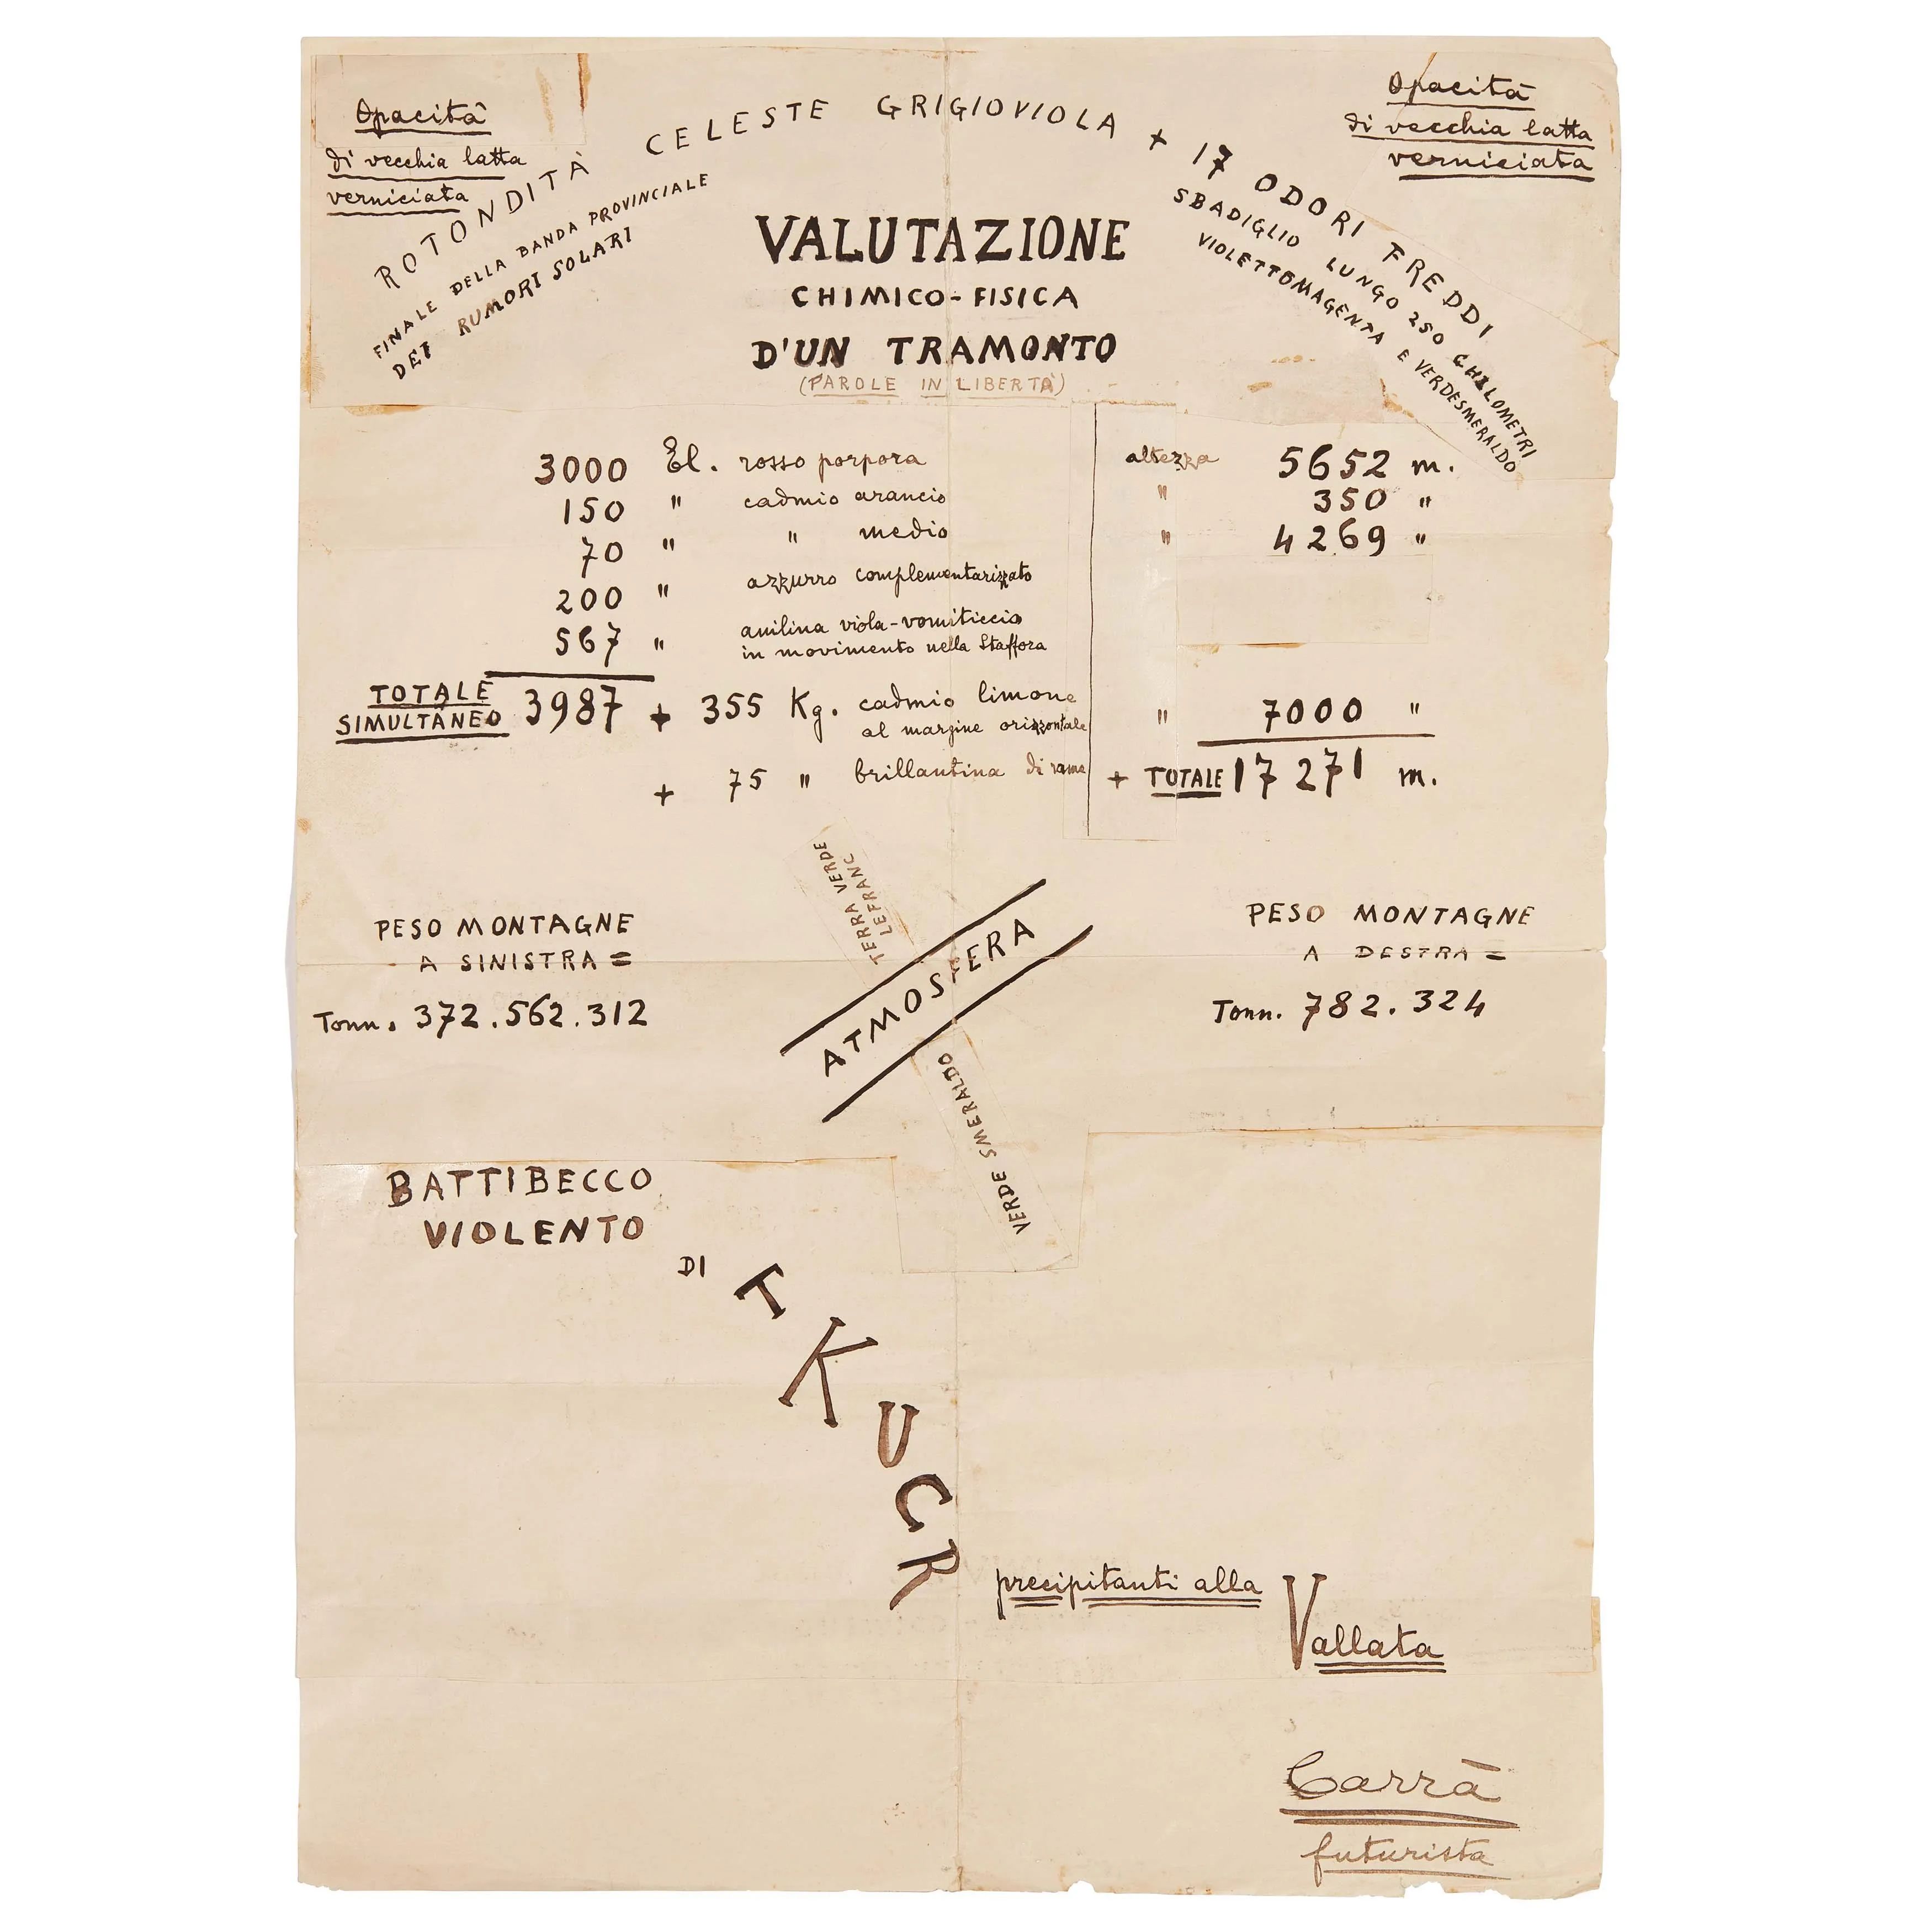 Opacità
di vecchia latta
verniciata
ROTONDITÀ CELESTE GRIGIOVIOLA + 17 ODORI FREDDI
Opacità
di vecchia latta
verniciata
FINALE DELLA BANDA PROVINCIALE
DEI RUMORI SOLARI
SBADIGLIO LUNGO 250 CHILOMETRI
VIOLETTOMAGENTA E VERDESMERALDO
VALUTAZIONE
CHIMICO-FISICA
D'UN TRAMONTO
(PAROLE IN LIBERTÀ)
3000 El. rosso porpora altezza 5652 m.
150 " cadmio arancio " 350 "
70 " " medio " 4269 "
200 " azzurro complementarizzato
567 " anilina viola-vomiticcio
in movimento nella Staffora
TOTALE
SIMULTÀNEO 3987 + 355 Kg. cadmio limone " 7000 "
al margine orizzontale
+ 75 " brillantina di rame + TOTALE 17271 m.
TERRA VERDE
LEFRANC
ATMOSFERA
VERDE SMERALDO
PESO MONTAGNE
A SINISTRA =
Tonn. 372.562.312
PESO MONTAGNE
A DESTRA =
Tonn. 782.324
BATTIBECCO
VIOLENTO
DI TKUCR
precipitanti alla
Vallata
Carrà
futurista